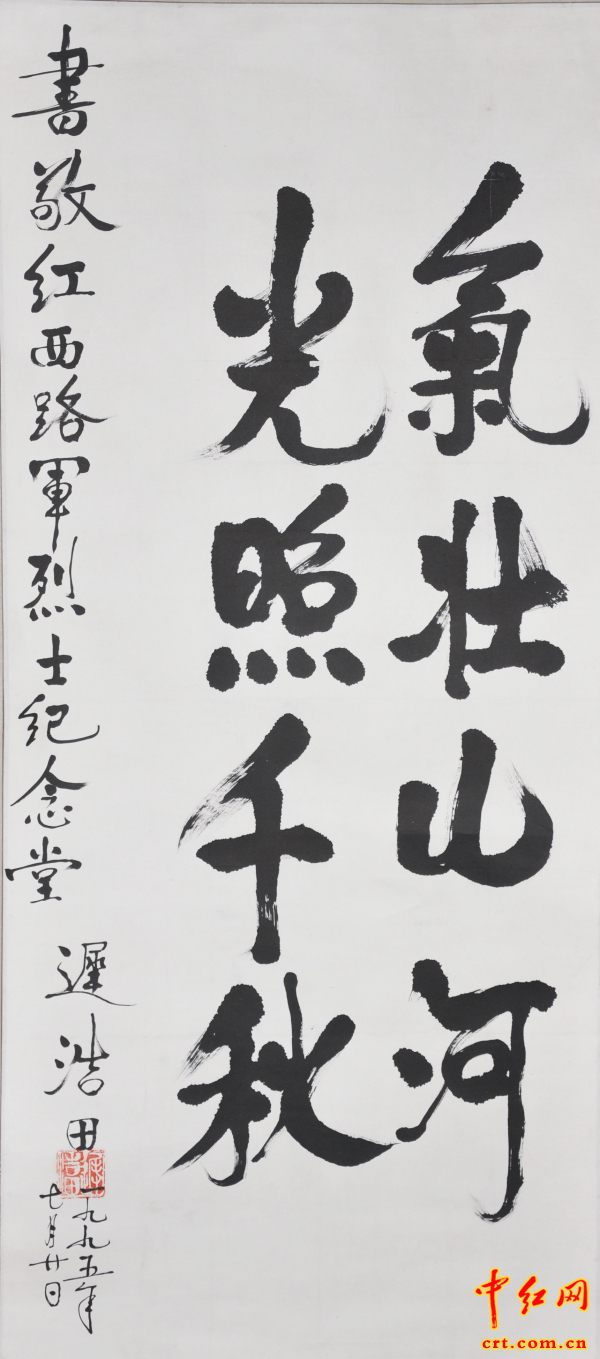 氣壯山河
光照千秋
書敬紅西路軍烈士纪念堂
遲浩田
一九九五年
七月廿日
中红网
crt.com.cn